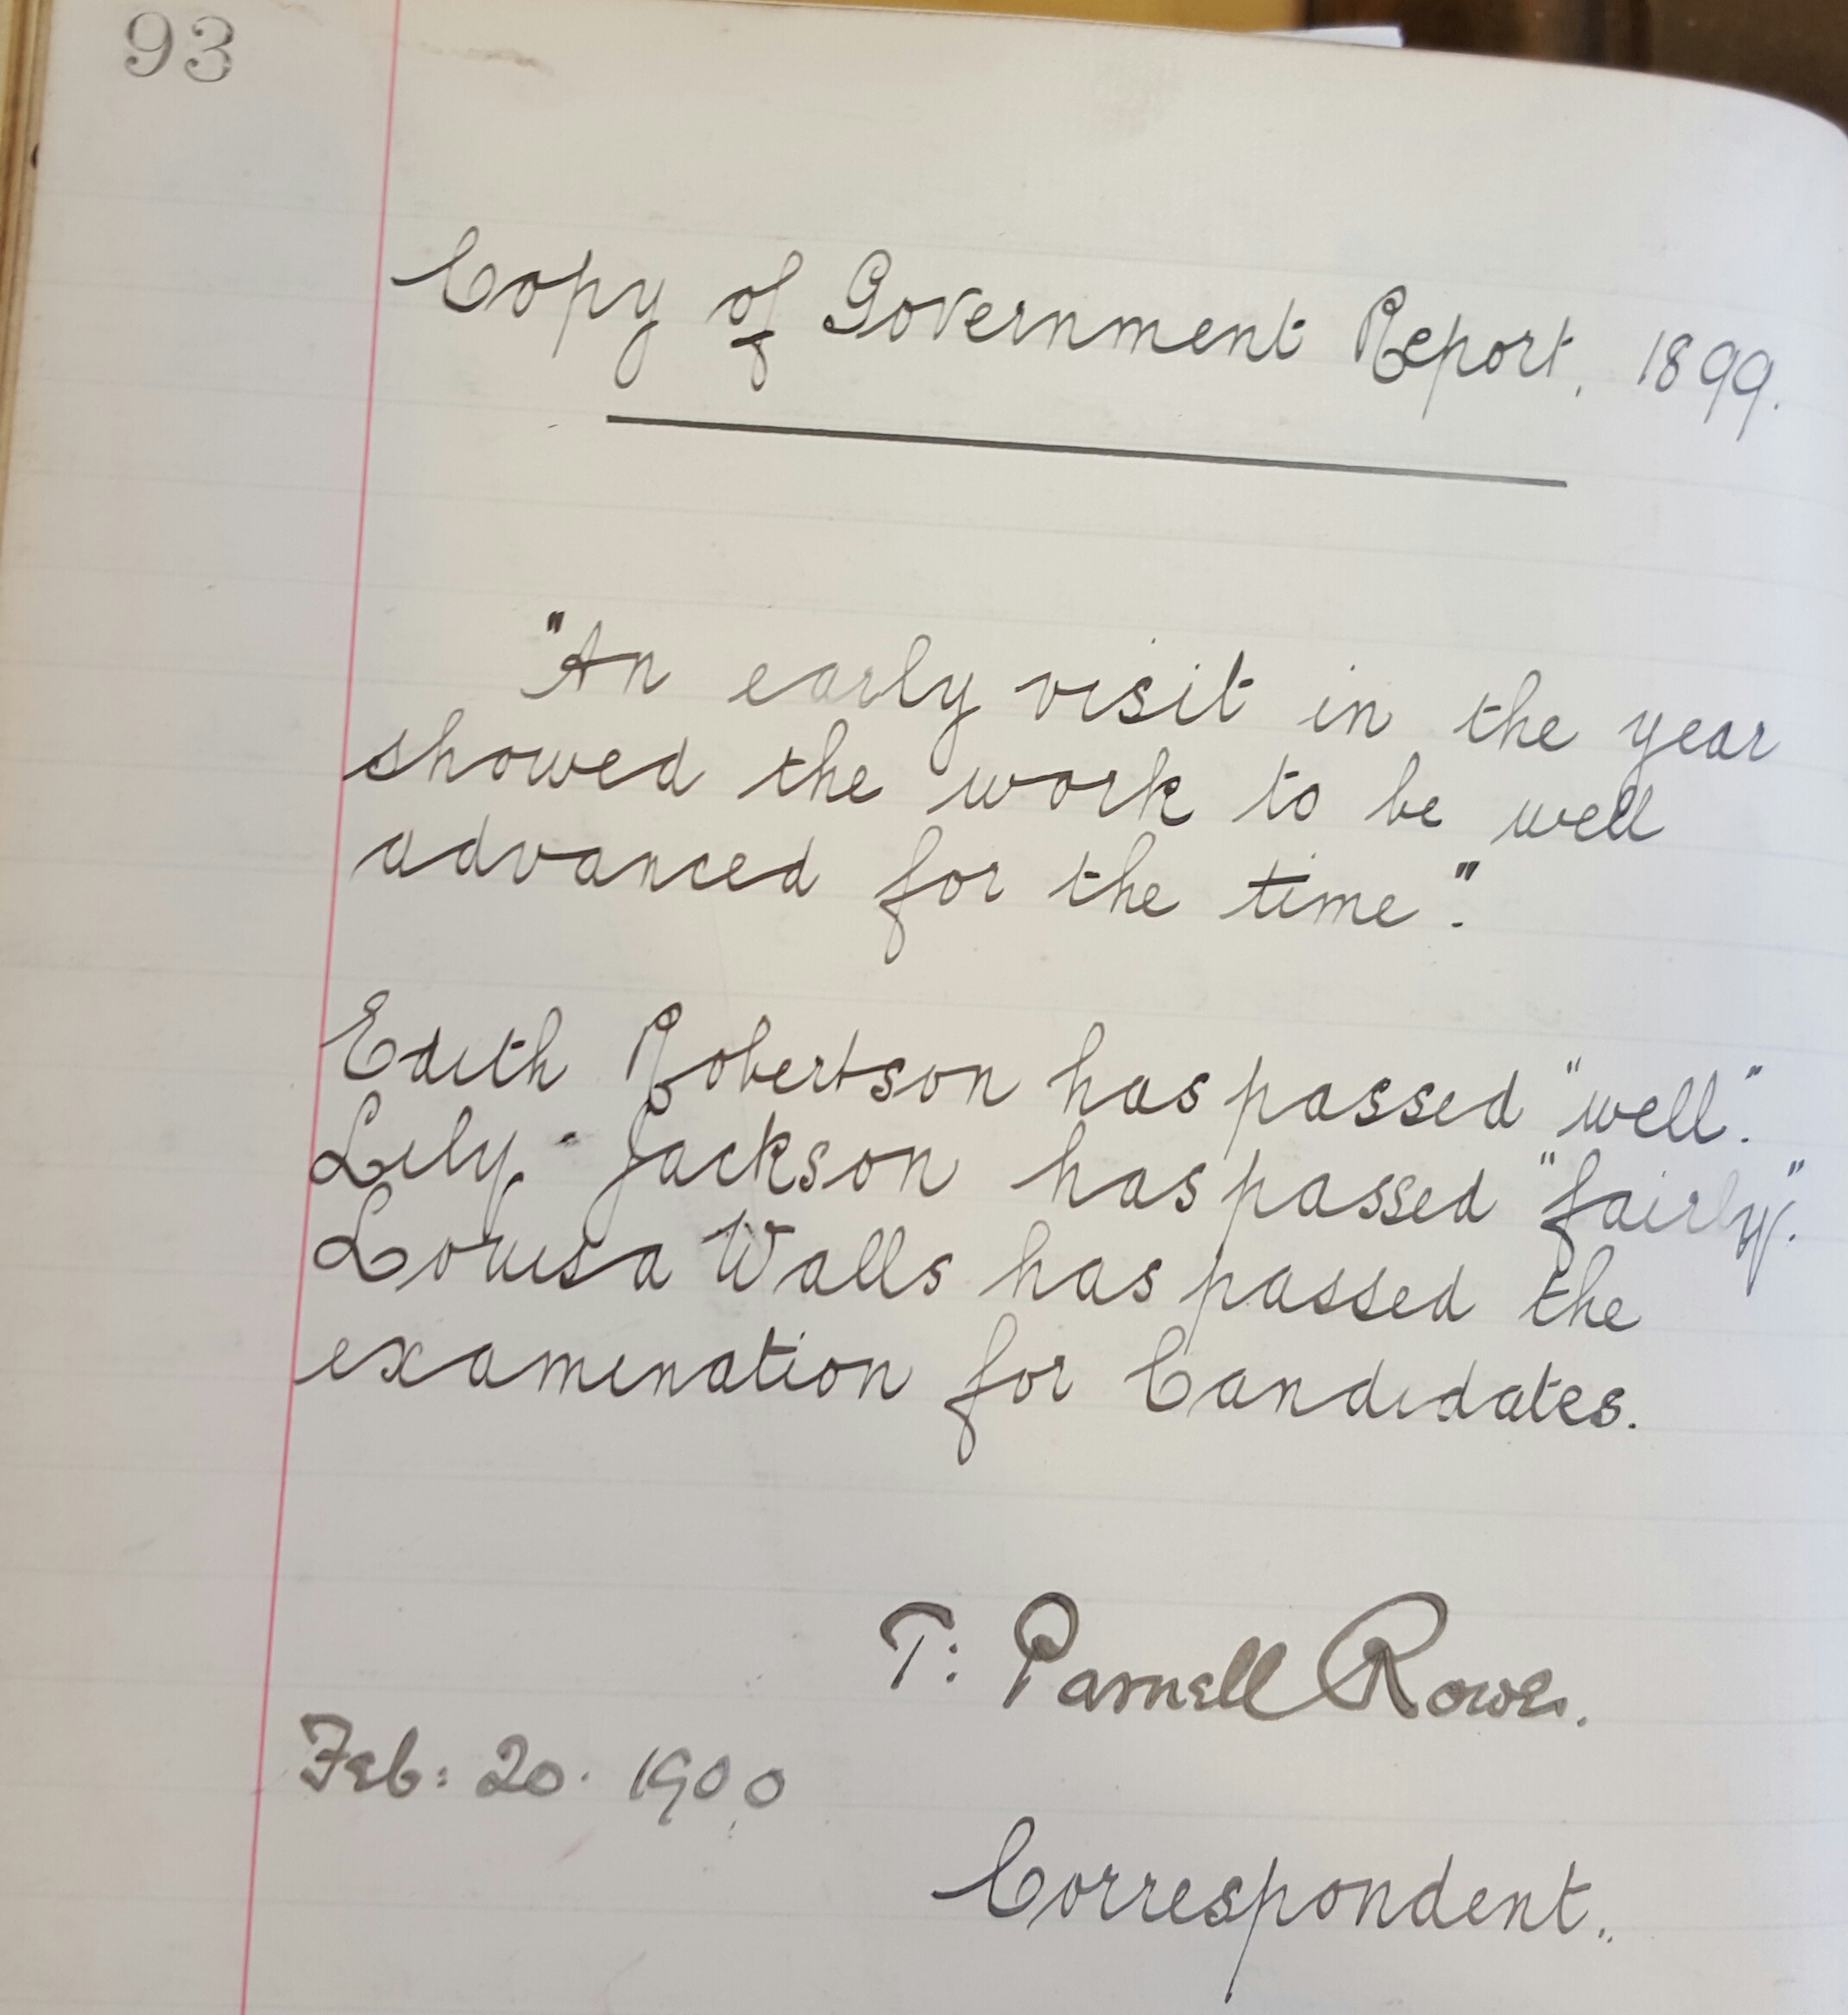 93
Copy of Government Report, 1899.
"An early visit in the year
showed the work to be well
advanced for the time."
Edith Robertson has passed "well."
Lily Jackson has passed "fairly."
Louisa Walls has passed the
examination for Candidates.
T: Parnell Rowe.
Feb: 20. 1900
Correspondent.